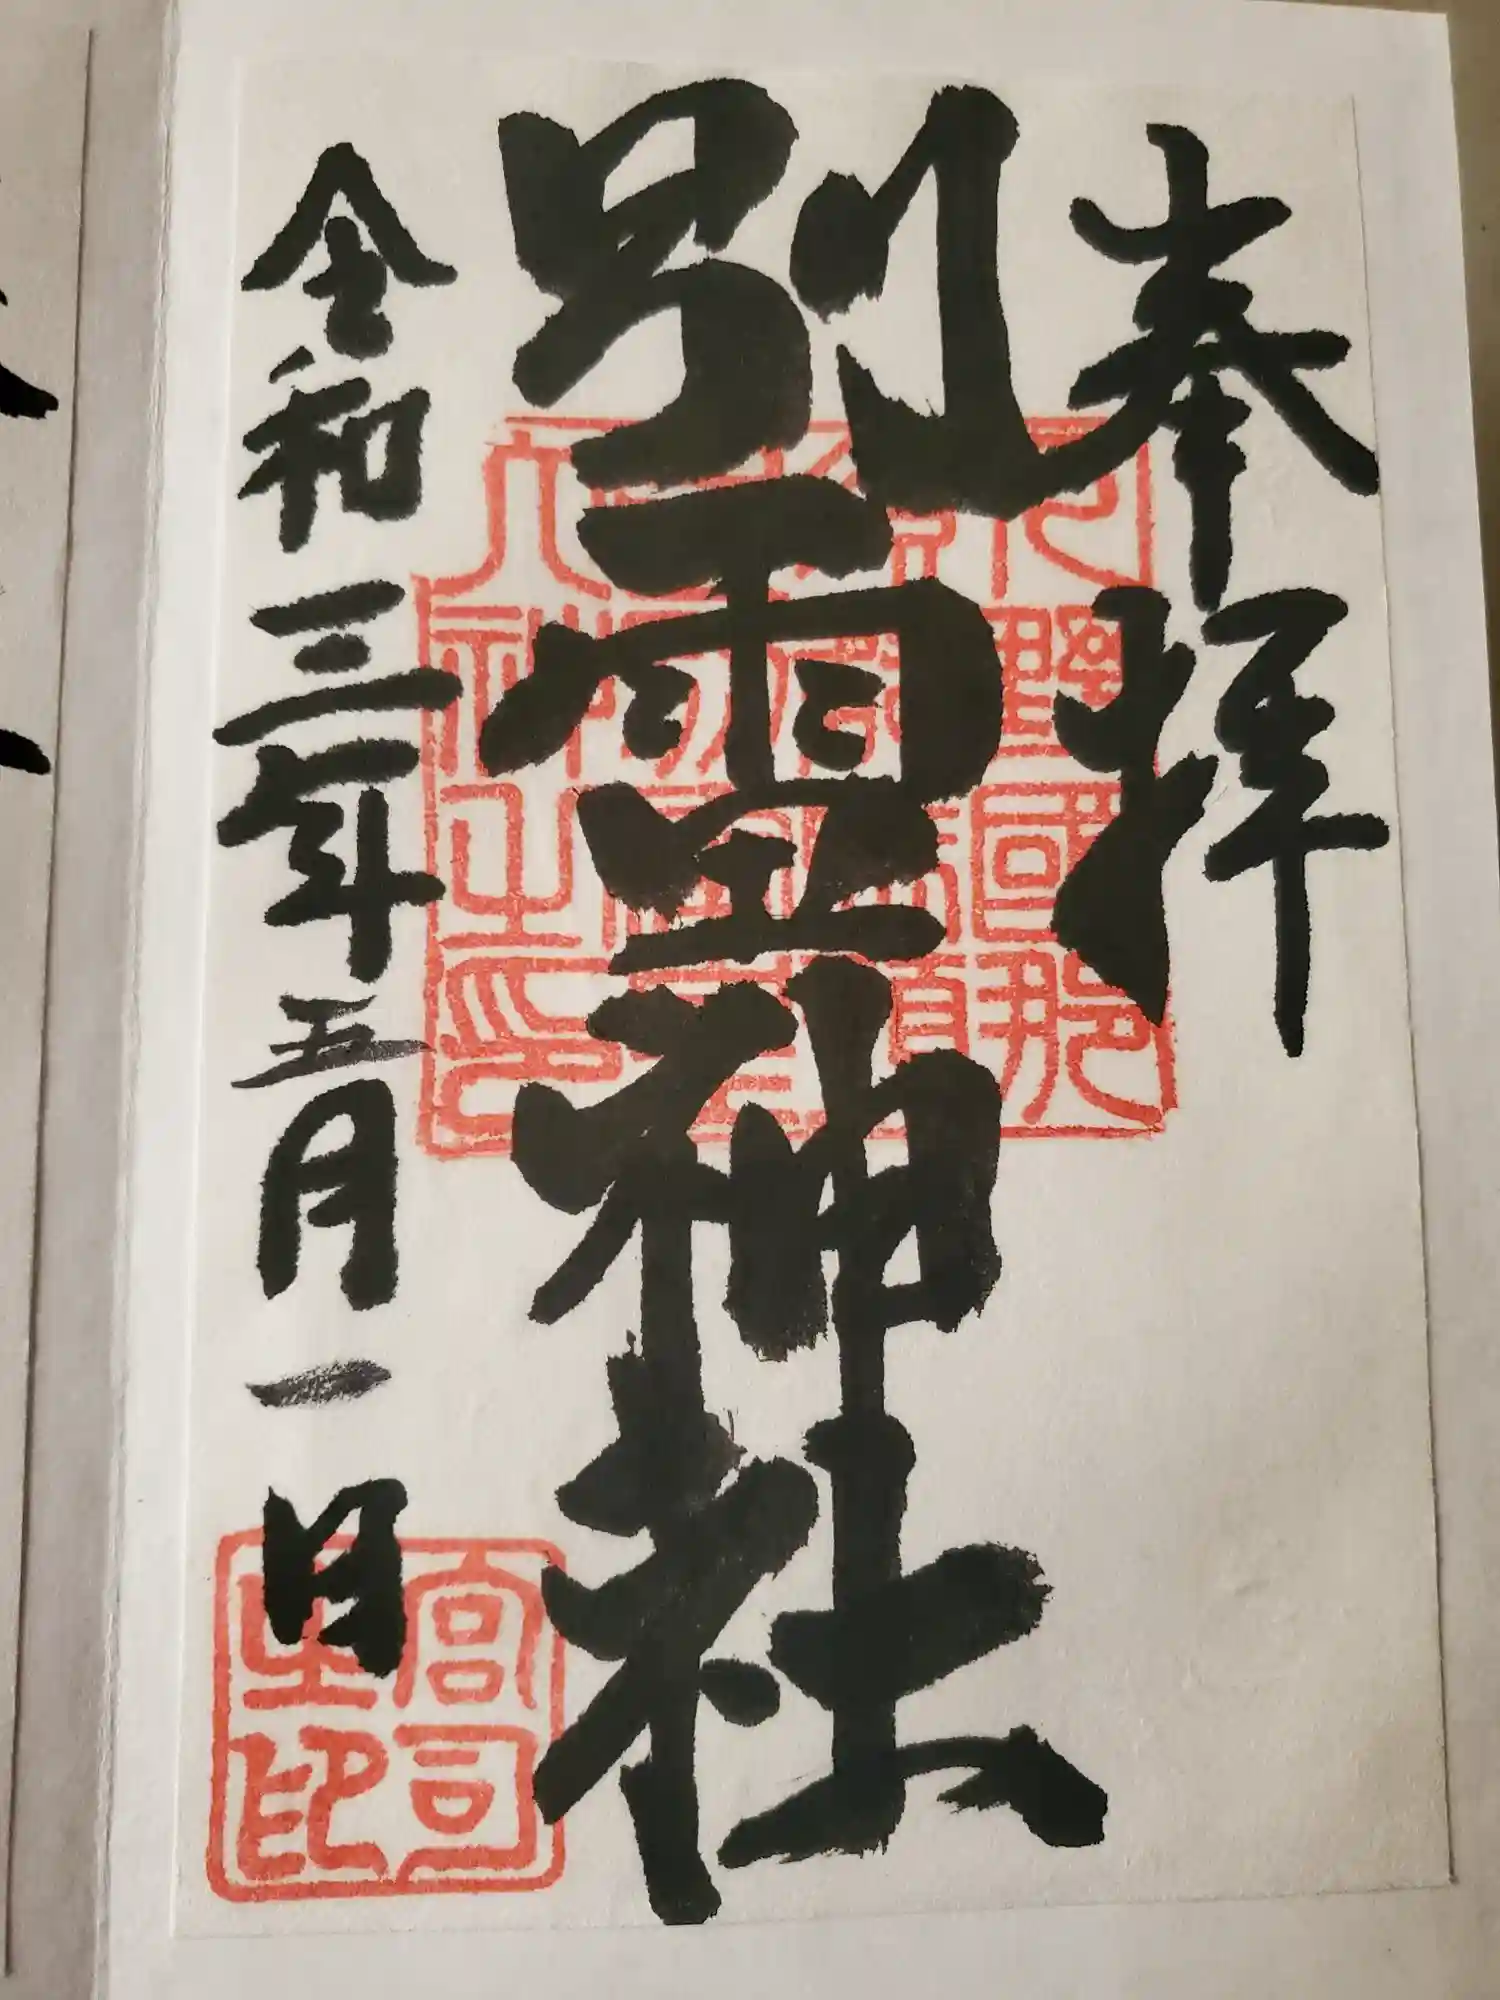 奉拝
別雷神社
令和三年五月一日
宮司之印